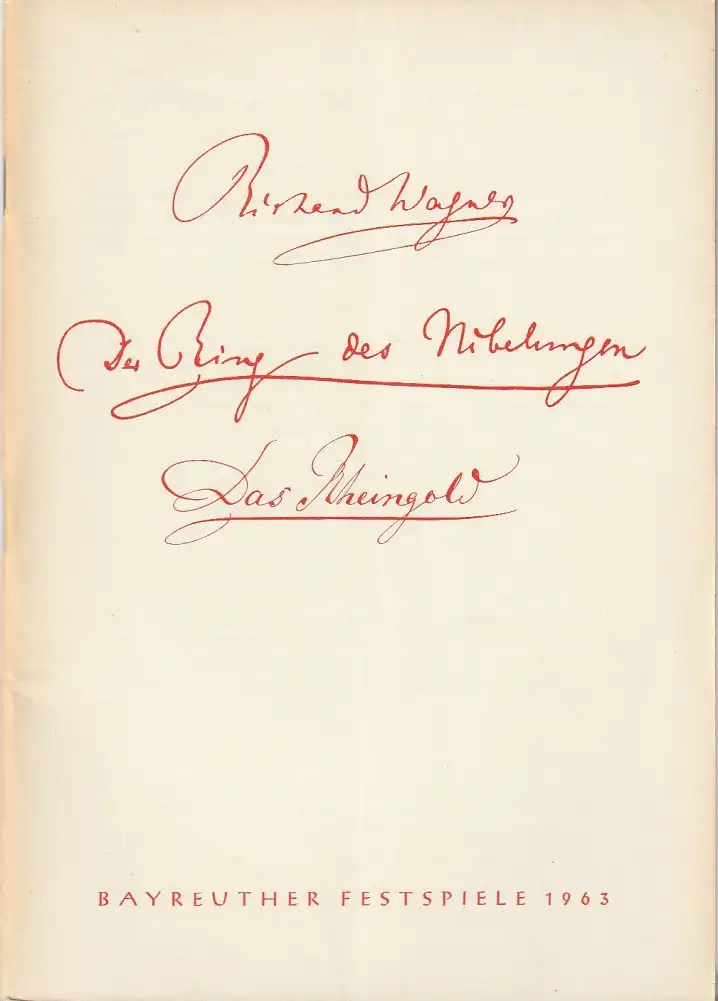 Richard Wagner
Der Ring des Nibelungen
Das Rheingold
BAYREUTHER FESTSPIELE 1963